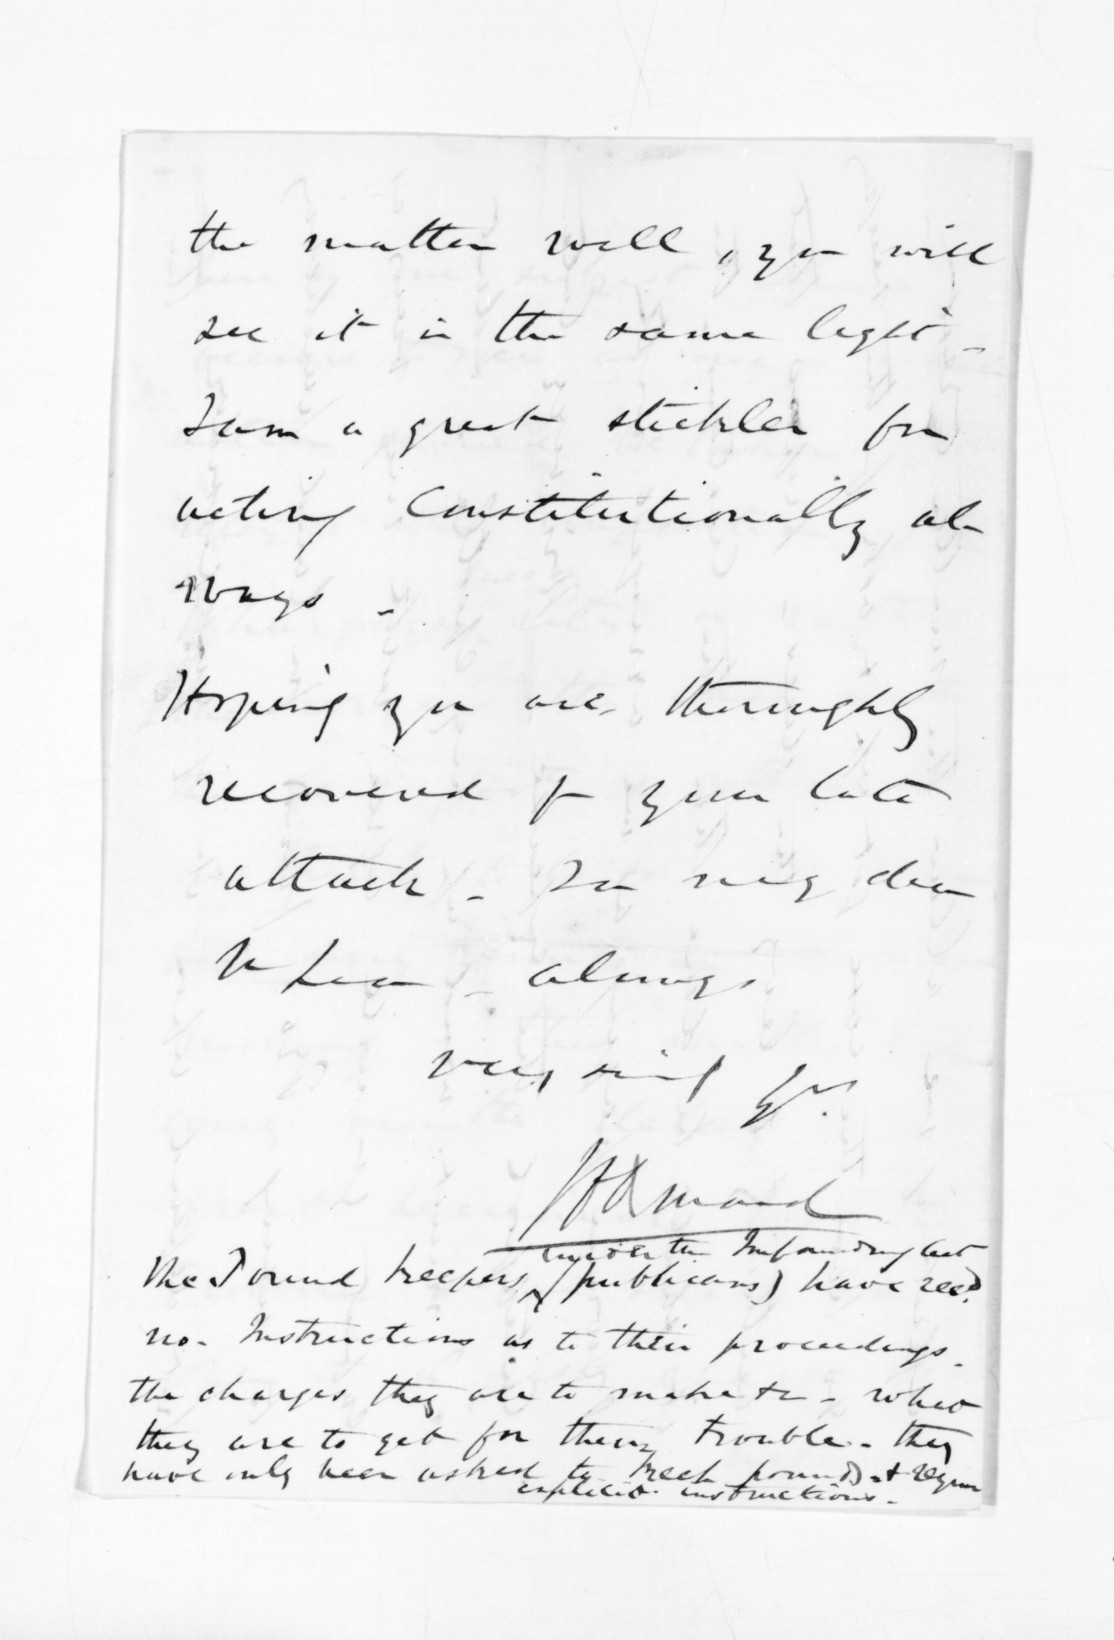 the matter well, you will
see it in the same light -
I am a great stickler for
acting Constitutionally al
ways -
Hoping you are thoroughly
recovered fm your late
attack - I am my dear
McLean - always
very sincly Yrs.
under the Impounding Act
The Pound keepers, (publicans) have recd.
no- Instructions as to their proceedings -
the charges they are to make &c - what
they are to get for their trouble - they
have only been asked to keep pounds - & require
explicit instructions -